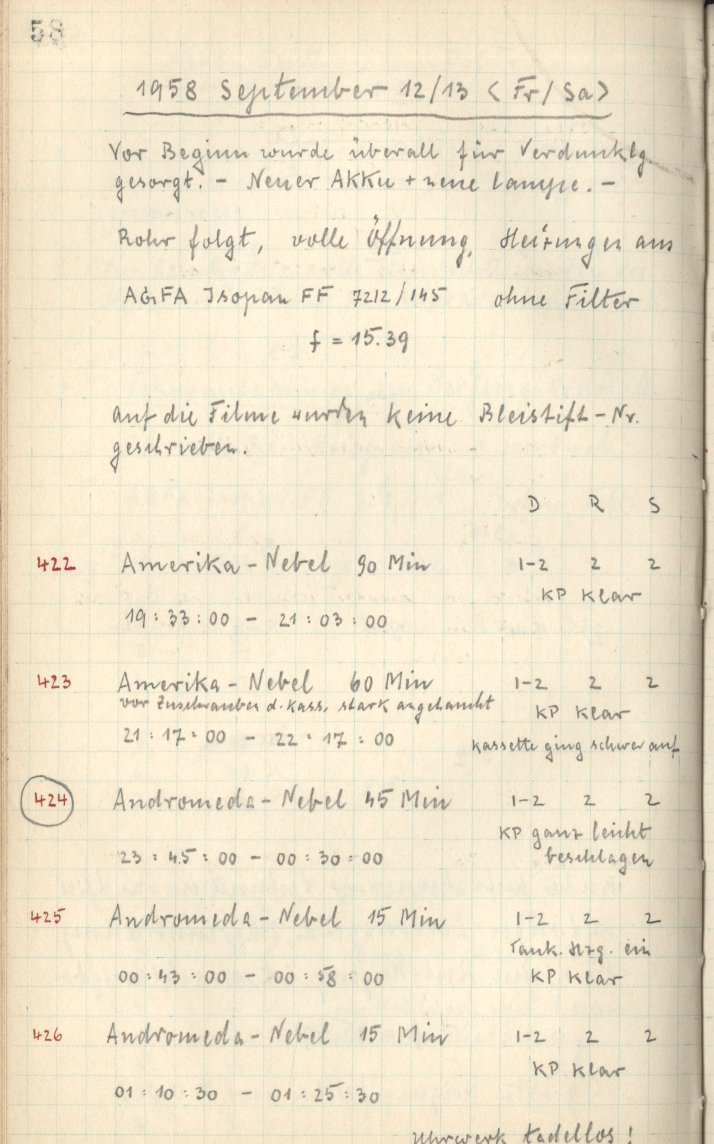 58
1958 September 12/13 < Fr/Sa >
Vor Beginn wurde überall für Verdunklg.
gesorgt. - Neuer Akku + neue Lampe. -
Rohr folgt, volle Öffnung, Heizungen aus
AGFA Isopan FF 7212/145 ohne Filter
f = 15.39
auf die Filme wurden keine Bleistift-Nr.
geschrieben.
D R S
422 Amerika-Nebel 90 Min 1-2 2 2
KP klar
19:33:00 - 21:03:00
423 Amerika-Nebel 60 Min 1-2 2 2
vor Zuschrauben d. Kass. stark angehaucht
KP klar
21:17:00 - 22:17:00
Kassette ging schwer auf
424 Andromeda-Nebel 45 Min 1-2 2 2
KP ganz leicht
beschlagen
23:45:00 - 00:30:00
425 Andromeda-Nebel 15 Min 1-2 2 2
Tauk. Hzg. ein
00:43:00 - 00:58:00
KP klar
426 Andromeda-Nebel 15 Min 1-2 2 2
KP klar
01:10:30 - 01:25:30
Uhrwerk tadellos!